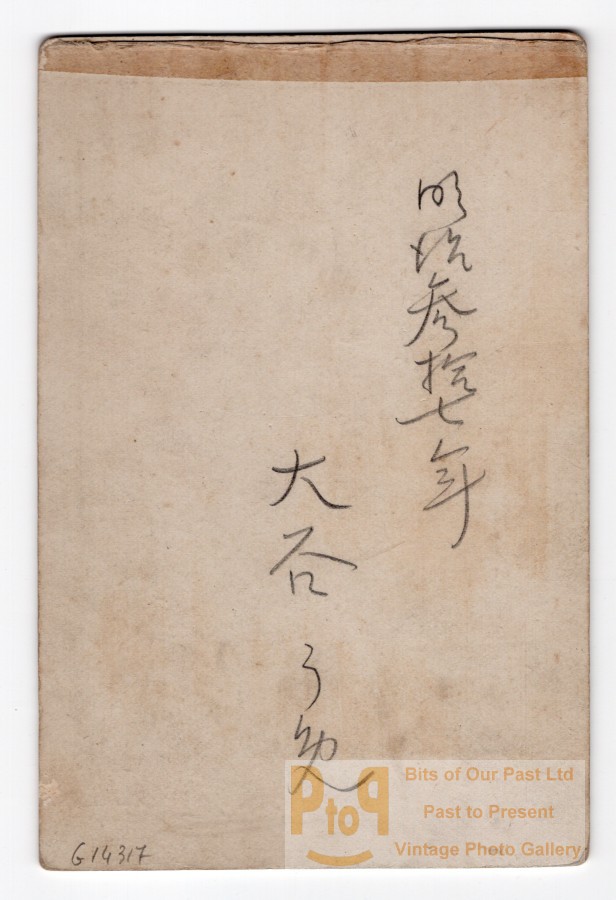 明治参拾七年
大谷
G14317
PtoP
Bits of Our Past Ltd
Past to Present
Vintage Photo Gallery